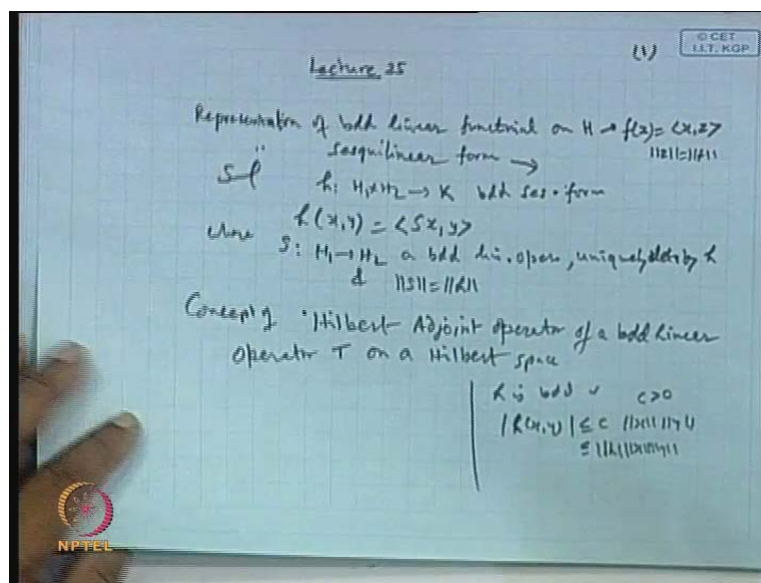 (1)
© CET
I.I.T. KGP
Lecture 25
Representation of bdd linear functional on H → f(x) = <x, z>
||z|| = ||f||
" Sesquilinear form →
h: H₁×H₂ → K bdd ses. form
h(x, y) = <Sx, y>
where S: H₁ → H₂ a bdd lin. oper, uniquely by h
& ||S|| = ||h||
Concept of Hilbert-Adjoint operator of a bdd linear
operator T on a Hilbert space
h is bdd c>0
|h(x,y)| ≤ c ||x|| ||y||
≤ ||h|| ||x|| ||y||
NPTEL